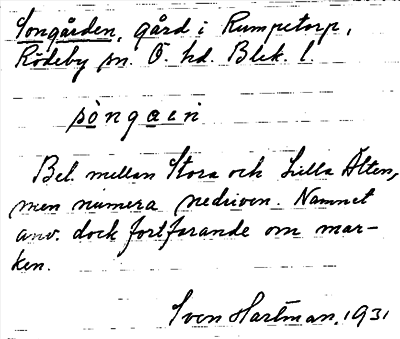 Songården, gård i Rumpetorp,
Rödeby sn. Ö. hd. Blek. l.
Bel. mellan Stora och Lilla Älten,
men numera nedriven. Namnet
anv. dock fortfarande om mar-
ken.
Sven Hartman. 1931